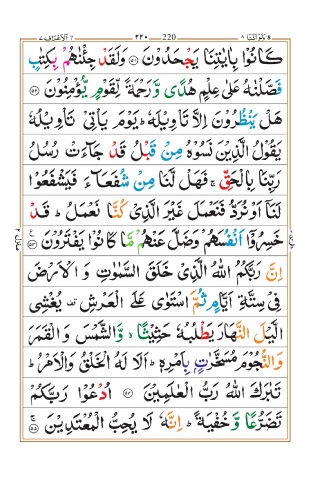 ولواننا ۸ ۲۲۰ 220 الاعراف ۷
كَانُوْا بِاٰيٰتِنَا يَجْحَدُوْنَ ۵۱ وَلَقَدْ جِئْنٰهُمْ بِكِتٰبٍ
فَصَّلْنٰهُ عَلٰى عِلْمٍ هُدًى وَّرَحْمَةً لِّقَوْمٍ يُّؤْمِنُوْنَ ۵۲
هَلْ يَنْظُرُوْنَ اِلَّا تَاْوِيْلَهٗ ؕ يَوْمَ يَاْتِيْ تَاْوِيْلُهٗ
يَقُوْلُ الَّذِيْنَ نَسُوْهُ مِنْ قَبْلُ قَدْ جَآءَتْ رُسُلُ
رَبِّنَا بِالْحَقِّ ۚ فَهَلْ لَّنَا مِنْ شُفَعَآءَ فَيَشْفَعُوْا
لَنَاۤ اَوْ نُرَدُّ فَنَعْمَلَ غَيْرَ الَّذِيْ كُنَّا نَعْمَلُ ؕ قَدْ
خَسِرُوْۤا اَنْفُسَهُمْ وَضَلَّ عَنْهُمْ مَّا كَانُوْا يَفْتَرُوْنَ ۵۳
اِنَّ رَبَّكُمُ اللّٰهُ الَّذِيْ خَلَقَ السَّمٰوٰتِ وَ الْاَرْضَ
فِيْ سِتَّةِ اَيَّامٍ ثُمَّ اسْتَوٰى عَلَى الْعَرْشِ ۟ يُغْشِي
الَّيْلَ النَّهَارَ يَطْلُبُهٗ حَثِيْثًا ۙ وَّالشَّمْسَ وَ الْقَمَرَ
وَالنُّجُوْمَ مُسَخَّرٰتٍۭ بِاَمْرِهٖ ؕ اَلَا لَهُ الْخَلْقُ وَالْاَمْرُ ؕ
تَبٰرَكَ اللّٰهُ رَبُّ الْعٰلَمِيْنَ ۵۴ اُدْعُوْا رَبَّكُمْ
تَضَرُّعًا وَّ خُفْيَةً ؕ اِنَّهٗ لَا يُحِبُّ الْمُعْتَدِيْنَ ۵۵